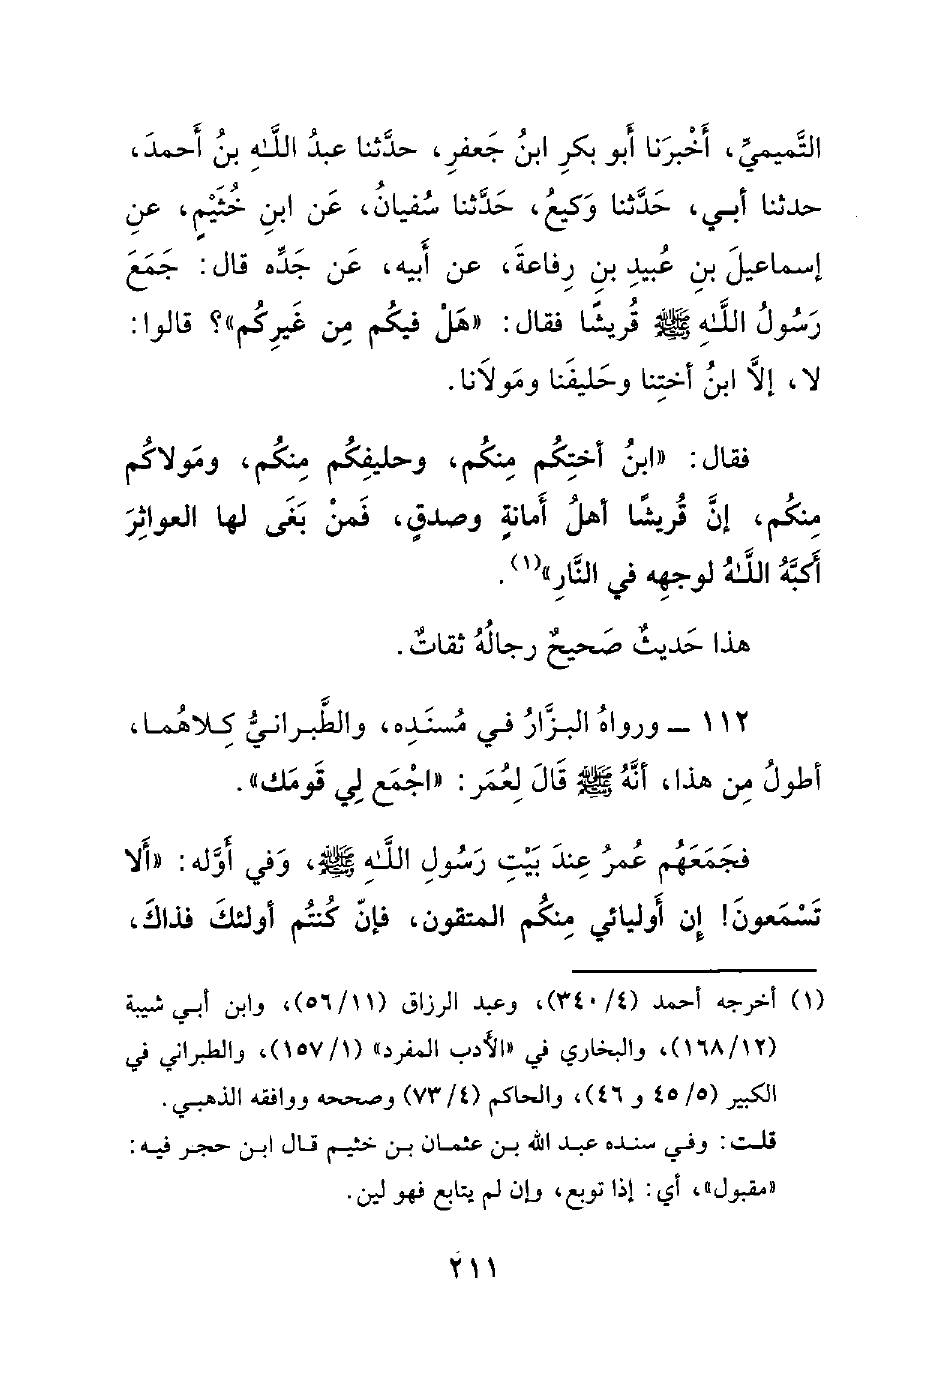 التَّميميِّ، أَخْبرَنا أَبو بكرِ ابنُ جَعفرِ، حدَّثنا عبدُ اللَّهِ بنُ أَحمدَ،
حدثنا أبي، حَدَّثنا وَكيعُ، حَدَّثنا سُفيانُ، عَن ابنِ خُثَيْمٍ، عنِ
إسماعيلَ بنِ عُبيدِ بنِ رِفاعةَ، عن أَبيه، عَن جَدِّه قال: جَمَعَ
رَسُولُ اللَّهِ ﷺ قُريشًا فقال: «هَلْ فيكُم مِن غَيرِكُم»؟ قالوا:
لا، إلاَّ ابنُ أختِنا وحَليفَنا ومَولاَنا.
فقال: «ابنُ أختِكُم مِنكُم، وحليفِكُم مِنكُم، ومَولاكُم
مِنكُم، إنَّ قُريشًا أهلُ أَمانةٍ وصدقٍ، فَمنْ بَغَى لها العواثِرَ
أَكبَّهُ اللَّهُ لوجهِه في النَّارِ»(١).
هذا حَديثٌ صَحيحٌ رجالُهُ ثقاتٌ.
١١٢ ـ ورواهُ البزَّارُ في مُسنَدِه، والطَّبرانيُّ كِلاهُما،
أطولُ مِن هذا، أنَّهُ ﷺ قَالَ لِعُمَر: «اجْمَع لِي قَومَك».
فجَمَعَهُم عُمرُ عِندَ بَيْتِ رَسُولِ اللَّهِ ﷺ، وَفي أَوَّله: «أَلا
تَسْمَعونَ! إِن أَوليائي مِنكُم المتقون، فإنّ كُنتُم أولئكَ فذاكَ،
(١) أخرجه أحمد (٤/ ٣٤٠)، وعبد الرزاق (١١/ ٥٦)، وابن أبي شيبة
(١٢/ ١٦٨)، والبخاري في «الأدب المفرد» (١/ ١٥٧)، والطبراني في
الكبير (٥/ ٤٥ و ٤٦)، والحاكم (٤/ ٧٣) وصححه ووافقه الذهبي.
قلت: وفي سنده عبد الله بن عثمان بن خثيم قال ابن حجر فيه:
«مقبول»، أي: إذا توبع، وإن لم يتابع فهو لين.
٢١١